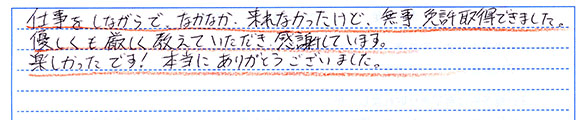 仕事をしながらで、なかなか、来れなかったけど、無事 免許取得できました。
優しくも厳しく教えていただき感謝しています。
楽しかったです！本当にありがとうございました。